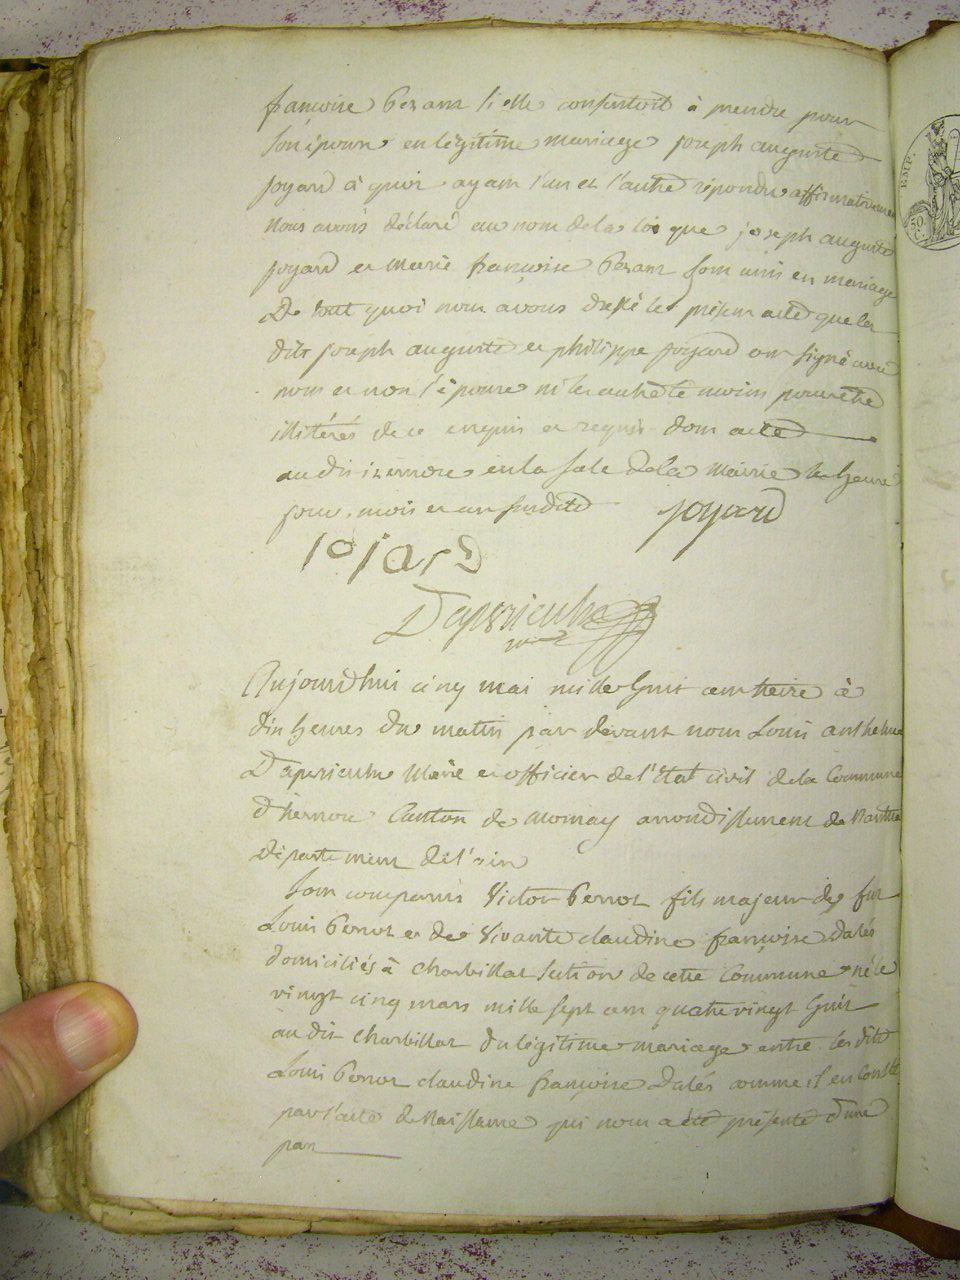 françoise Besans si elle consentoit à prendre pour
son époux en légitime mariage joseph auguste
joyard à quoi ayant l'un et l'autre répondu affirmativement
nous avons déclaré au nom de la loi que joseph auguste
joyard et Marie françoise Besans sont unis en mariage
De tout quoi nous avons dressé le présent acte que les
dits joseph auguste et philippe joyard ont signé avec
nous et non l'épouse ni les autres témoins pour être
illitérés de ce enquis et requis dont acte
au dit izernore en la sale de la Mairie les heure
jour, mois et an susdits joyard
jojard
maire
Aujourd'hui cinq mai mille huit cent treize à
dix heures du matin par devant nous Louis anthelme
Maire et officier de l'état civil de la Commune
d'hernore Canton de Mornay arrondissement de Nantua
département de l'ain
Sont comparus Victor Perrot fils majeur de fut
Louis Perrot et de Vivante claudine françoise Dalés
domiciliés à charbillat section de cette Commune né le
vingt cinq mars mille sept cent quatre vingt huit
au dit charbillat du légitime mariage entre les dits
Louis Perrot claudine françoise Dalés comme il en conste
par l'acte de Naissance qui nous a été présenté d'une
part
EMP.
50
C.